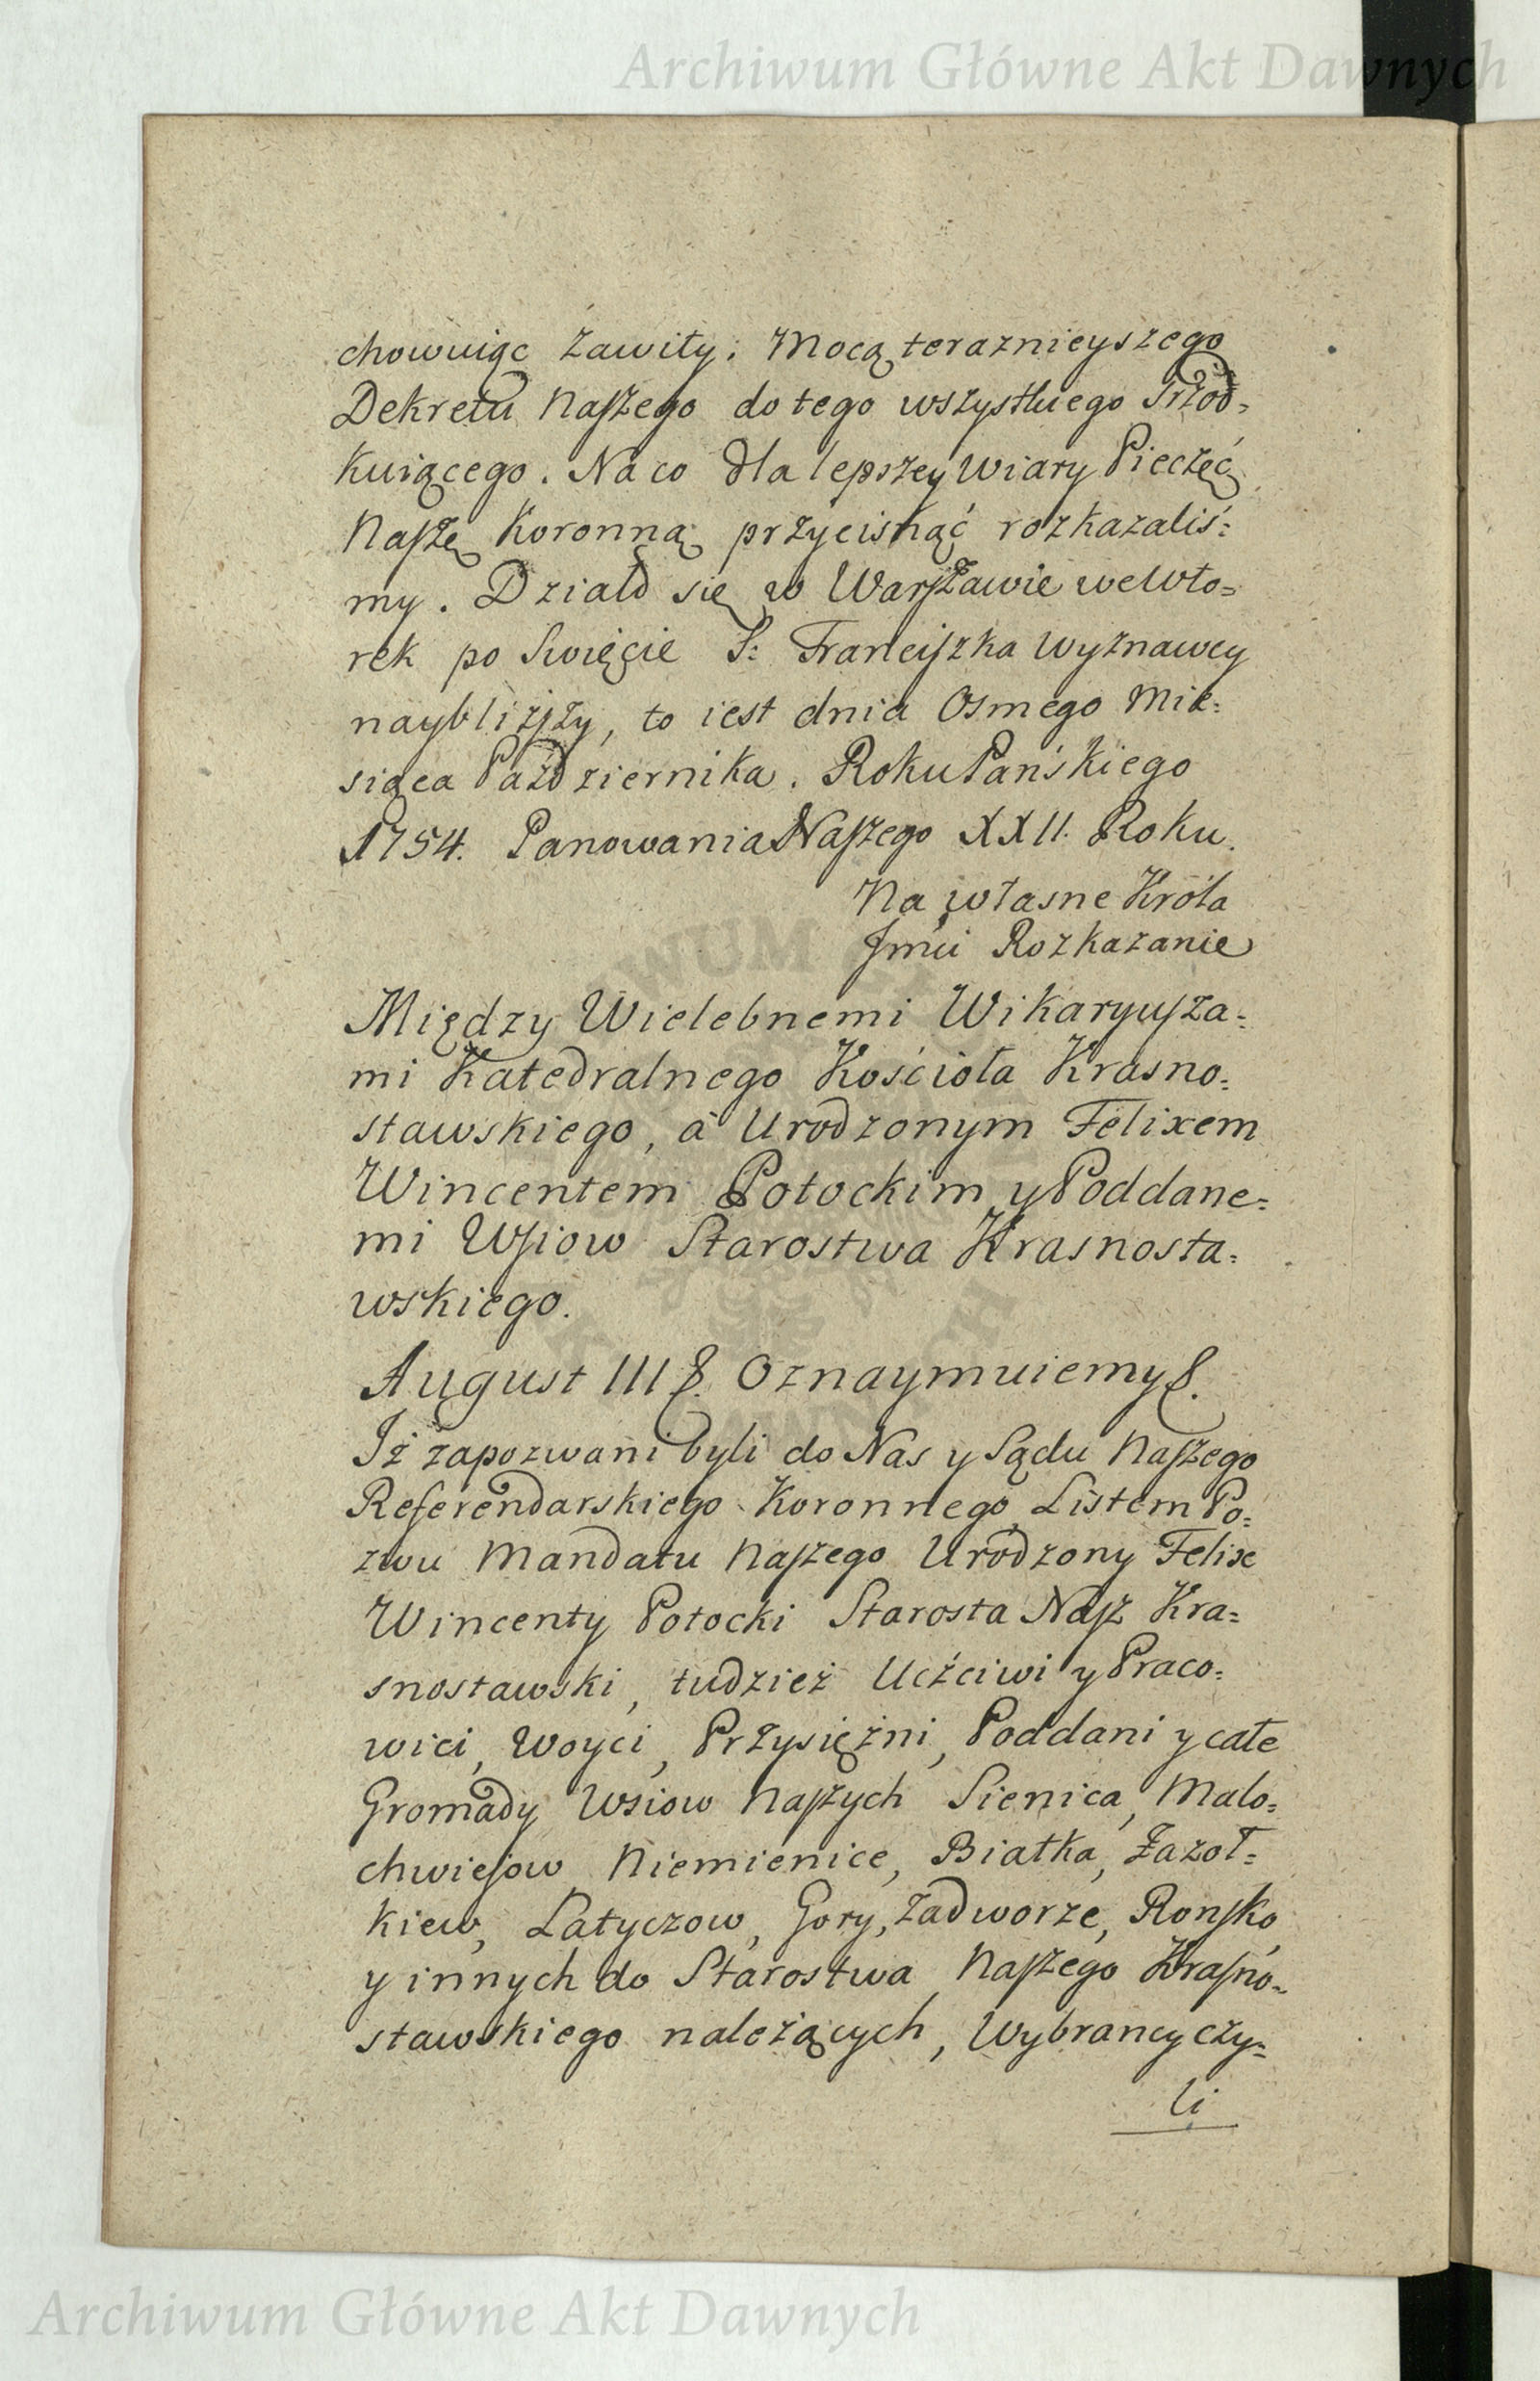 Archiwum Główne Akt Dawnych
chowuiąc zawity. Mocą teraznieyszego
Dekretu Naszego do tego wszystkiego Szrod=
kuiącego. Na co dla lepszey wiary Pieczęć
Naszę Koronną przycisnąć rozkazaliś=
my. Działo się w Warszawie we Wto=
rek po Swięcie S: Franciszka Wyznawcy
nayblizszy, to iest dnia Osmego Mie=
siąca Października. Roku Pańskiego
1754. Panowania Naszego XXII. Roku.
Na własne Króla
Jmći Rozkazanie
Między Wielebnemi Wikaryusza=
mi Katedralnego Kościoła Krasno=
stawskiego, a Urodzonym Felixem
Wincentem Potockim y Poddane=
mi Wsiow Starostwa Krasnosta=
wskiego.
August III &. Oznaymuiemy &.
Iż zapozwani byli do Nas y Sądu Naszego
Referendarskiego Koronnego Listem Po=
zwu Mandatu Naszego Urodzony Felix
Wincenty Potocki Starosta Nasz Kra=
snostawski, tudzież Uczciwi y Praco=
wici, Woyci, Przysiężni, Poddani y całe
Gromady Wsiow Naszych Sienica, Malo=
chwiejow, Niemienice, Białka, Zazoł=
kiew, Latyczow, Gory, Zadworze, Ronsko,
y innych do Starostwa Naszego Krasno=
stawskiego należących, Wybrancy czy=
li
Archiwum Główne Akt Dawnych